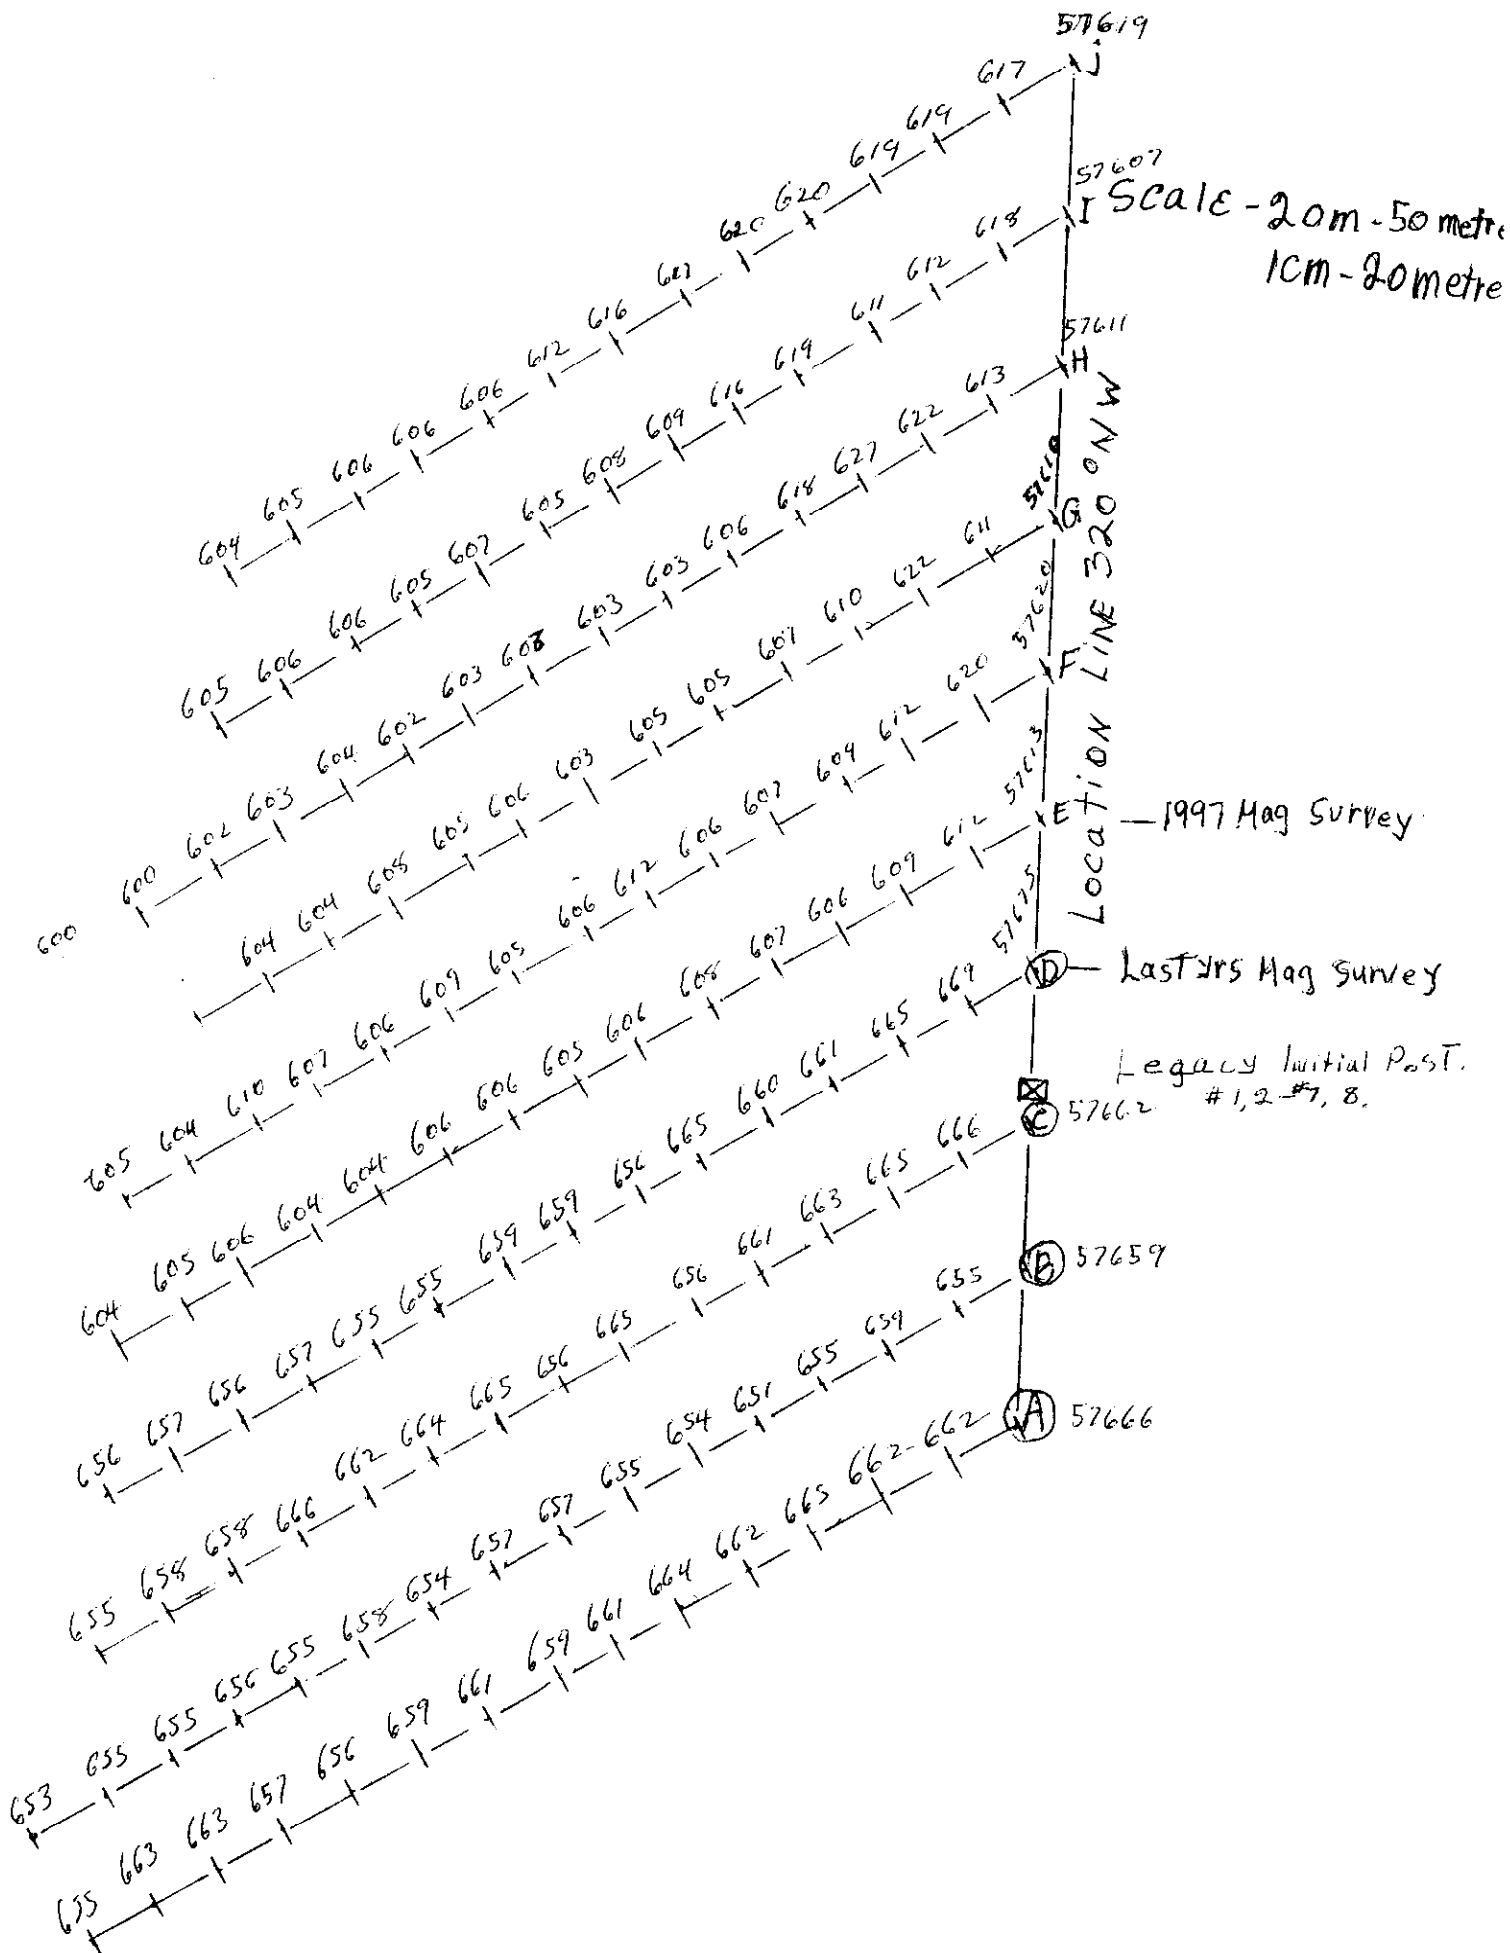 57619
J
604 605 606 606 606 612 616 617 620 620 619 619 617
57607
I
605 606 606 605 607 605 608 609 616 619 611 612 618
Scale - 20m - 50 metre
1cm - 20 metre
57611
H
600 600 602 603 604 602 603 603 603 603 606 618 627 622 613
57618
G
604 604 608 605 606 603 605 605 607 610 622 611
57620
F
605 604 610 607 606 609 605 606 612 606 607 609 612 620
57613
E
604 605 606 604 604 606 606 605 606 608 607 606 609 612
LOCATION LINE 320° NW
— 1997 Mag Survey
57675
D
— Last yrs Mag Survey
656 657 656 657 655 655 659 659 656 665 660 661 665 669
Legacy Initial Post.
# 1, 2 - #7, 8.
C 57662
655 658 658 666 662 664 665 656 665 656 661 663 665 666
B 57659
653 655 655 656 655 658 654 657 657 655 654 651 655 659 655
A 57666
655 663 663 657 656 659 661 659 661 664 662 665 662 - 662